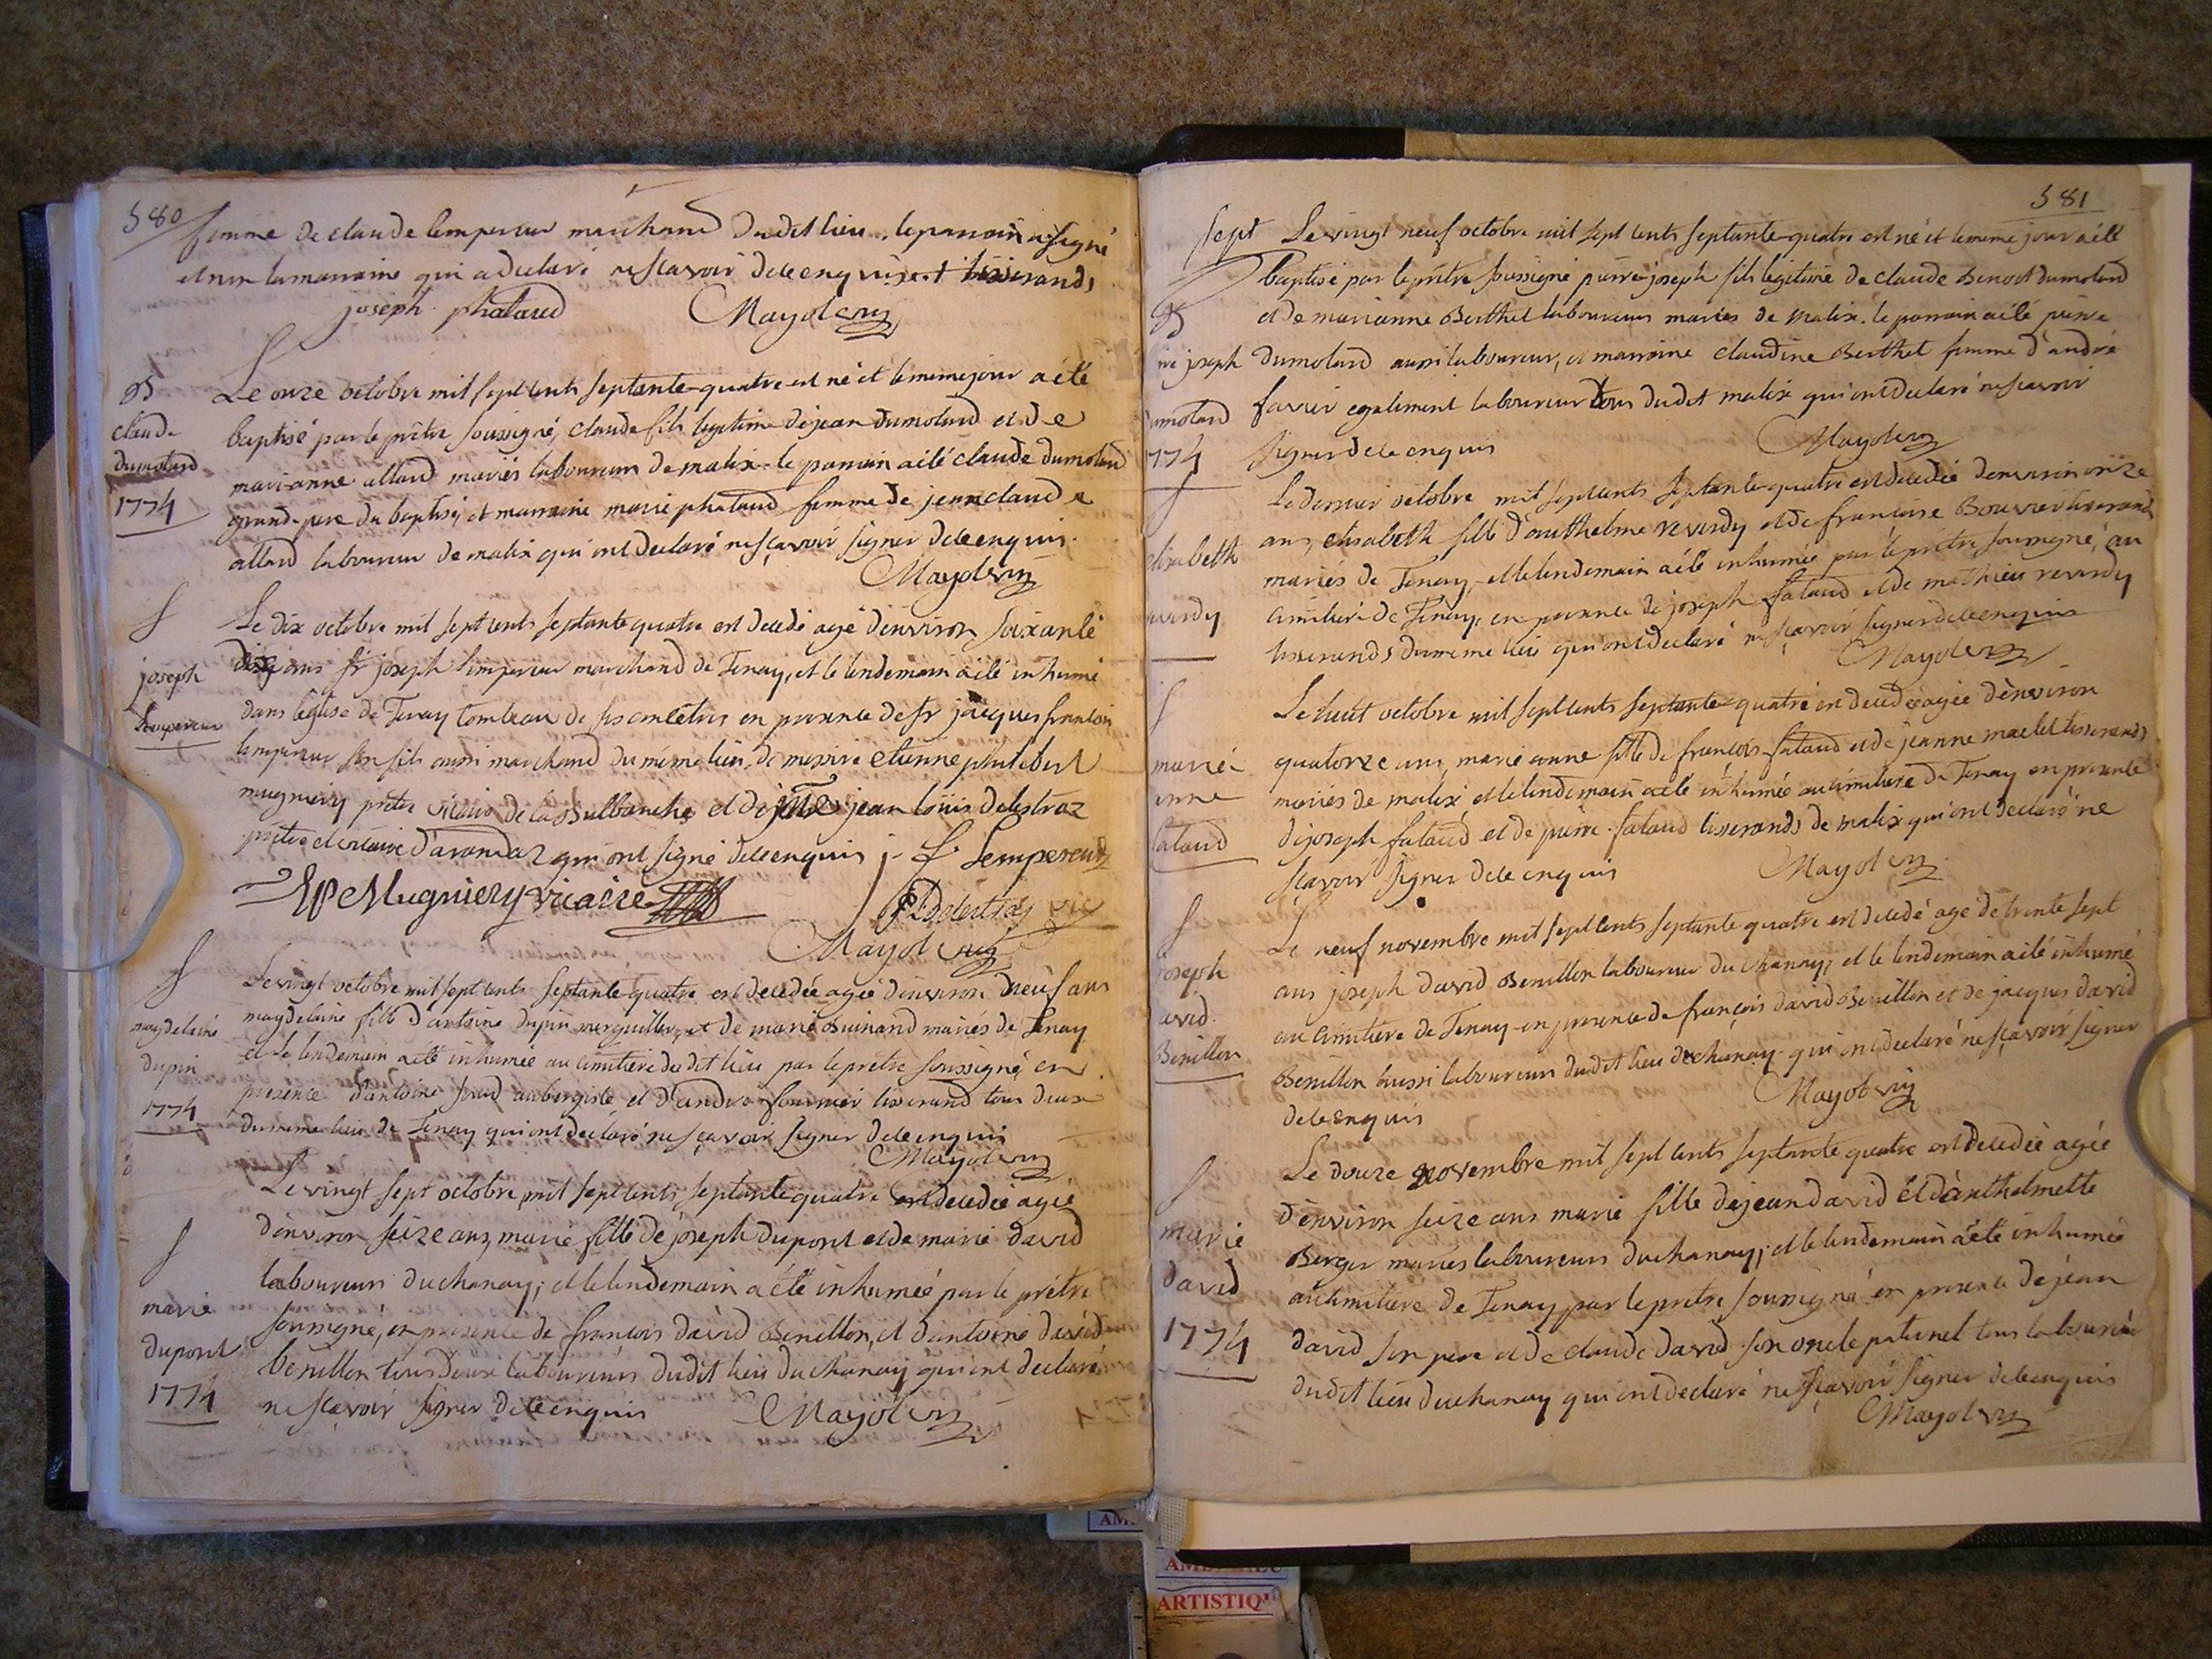 580
femme de claude lempereur marchand dudit lieu. le parrain a signé
et non la marraine qui a declaré ne scavoir de ce enquise
joseph phataud Mayol
B
claude
dumolard
1774
Le onze octobre mil sept cents septante-quatre est né et le meme jour a été
baptisé par le prêtre soussigné, claude fils legitime de jean dumolard et de
marianne allard mariés laboureurs de malix. le parrain a été claude dumolard
grand-pere du baptisé, et marraine marie phataud femme de jean claude
allard laboureur de malix qui ont declaré ne sçavoir signer de ce enquis.
Mayol
S
joseph
Lempereur
Le dix octobre mil sept cents septante quatre est decedé agé d'environ soixante
ans sr joseph lempereur marchand de Tenay, et le lendemain a été inhumé
dans l'eglise de Tenay tombeau de ses ancêtres en presence de sr jacques francois
lempereur son fils aussi marchand du même lieu, de messire etienne philibert
mugniery prêtre vicaire de la Bulbanche et de jean loüis delestraz
prêtre et vicaire d'arandaz qui ont signé de ce enquis j. f. Lempereur
EP Mugniery vicaire
Delestraz vic
Mayol
S
magdelaine
dupin
1774
Le vingt octobre mil sept cents septante quatre est decedée agée d'environ neuf ans
magdelaine fille d'antoine dupin marguillier, et de marie Buinand mariés de Tenay
et le lendemain a été inhumée au cimitiere dudit lieu par le prêtre soussigné, en
presence d'antoine aubergiste et d'andré fournier tisserand tous deux
du meme lieu de Tenay qui ont declaré ne sçavoir signer de ce enquis
Mayol
S
marie
dupont
1774
Le vingt sept octobre mil sept cents septante quatre est decedée agée
d'environ seize ans, marie fille de joseph dupont et de marie david
laboureurs du chanay; et le lendemain a été inhumée par le prêtre
soussigné, en presence de francois david Benillon, et d'antoine david
benillon tous deux laboureurs dudit lieu du chanay qui ont declaré
ne sçavoir signer de ce enquis Mayol
581
sept
B
joseph
dumolard
1774
Le vingt neuf octobre mil sept cents septante-quatre est né et le meme jour a été
baptisé par le prêtre soussigné pierre-joseph fils legitime de claude Benoit dumolard
et de marianne Berthet laboureurs mariés de malix. le parrain a été pierre
dumolard aussi laboureur, et marraine claudine Berthet femme d'andré
favier egalement laboureur tous dudit malix qui ont declaré ne scavoir
signer de ce enquis Mayol
S
elisabeth
reverdy
Le dernier octobre mil sept cents septante-quatre est decedée d'environ onze
ans, elisabeth fille d'anthelme reverdy et de francoise Bouvier tisserands
mariés de Tenay, et le lendemain a été inhumée par le prêtre soussigné, au
cimitiere de Tenay, en presence de joseph fataud et de mathieu reverdy
tisserands du meme lieu qui ont declaré ne sçavoir signer de ce enquis
Mayol
S
marie
anne
fataud
Le huit octobre mil sept cents septante-quatre est decedée agée d'environ
quatorze ans, marie anne fille de françois fataud et de jeanne maclet tisserands
mariés de malix et le lendemain a été inhumée au cimitiere de Tenay en presence
de joseph fataud et de pierre fataud tisserands de malix qui ont declaré ne
scavoir signer de ce enquis Mayol
S
joseph
david
Benillon
Le neuf novembre mil sept cents septante quatre est decedé agé de trente sept
ans joseph david Benillon laboureur du chanay, et le lendemain a été inhumé
au cimitiere de Tenay en presence de françois david Benillon et de jacques david
Benillon aussi laboureurs dudit lieu de chanay qui ont declaré ne sçavoir signer
de ce enquis Mayol
S
marie
david
1774
Le douze novembre mil sept cents septante quatre est decedée agée
d'environ seize ans marie fille de jean david et d'anthelmette
Berger mariés laboureurs du chanay; et le lendemain a été inhumée
au cimitiere de Tenay par le prêtre soussigné en presence de jean
david son pere et de claude david son oncle paternel tous laboureurs
dudit lieu du chanay qui ont declaré ne sçavoir signer de ce enquis
Mayol
ARTISTIQ